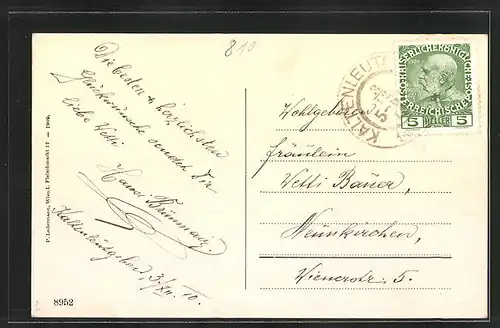 810
Die besten & herzlichsten
Glückwünsche sendet Dir
liebe Vetti
Hansi
Kaltenleutgeben, 3./XII. 10.
P. Ledermann, Wien I. Fleischmarkt 12 — 1909.
8952
KALTENLEUTG
KAISERLICHE KÖNIGLICHE
ÖSTERREICHISCHE POST
5 HELLER 5
Wohlgeboren
Fräulein
Vetti Bauer,
Neunkirchen,
Wienerstr. 5.